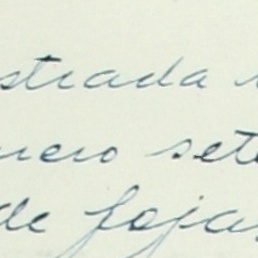 strada
nero sete
de fojas